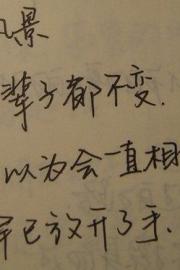 景
辈子都不变.
以为会一直相
已放开了手.